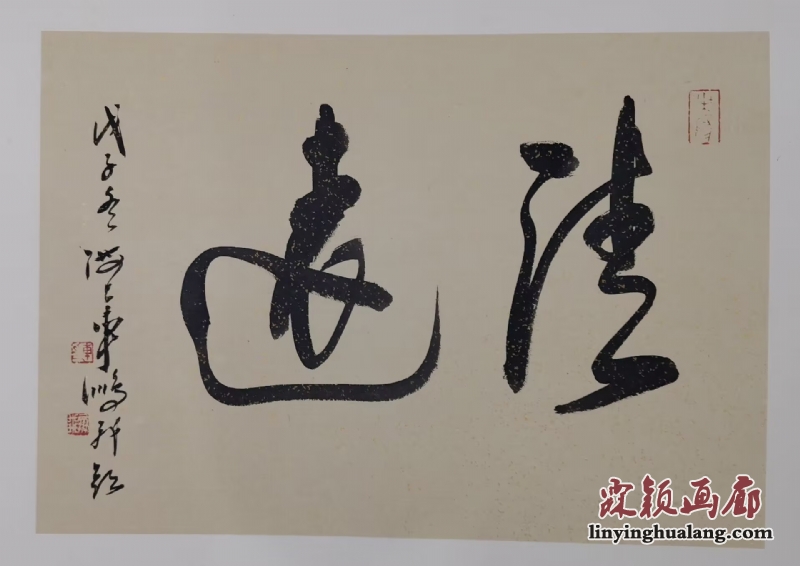 清遠
戊子冬海上車鵬飛題
霖颖画廊
linyinghualang.com